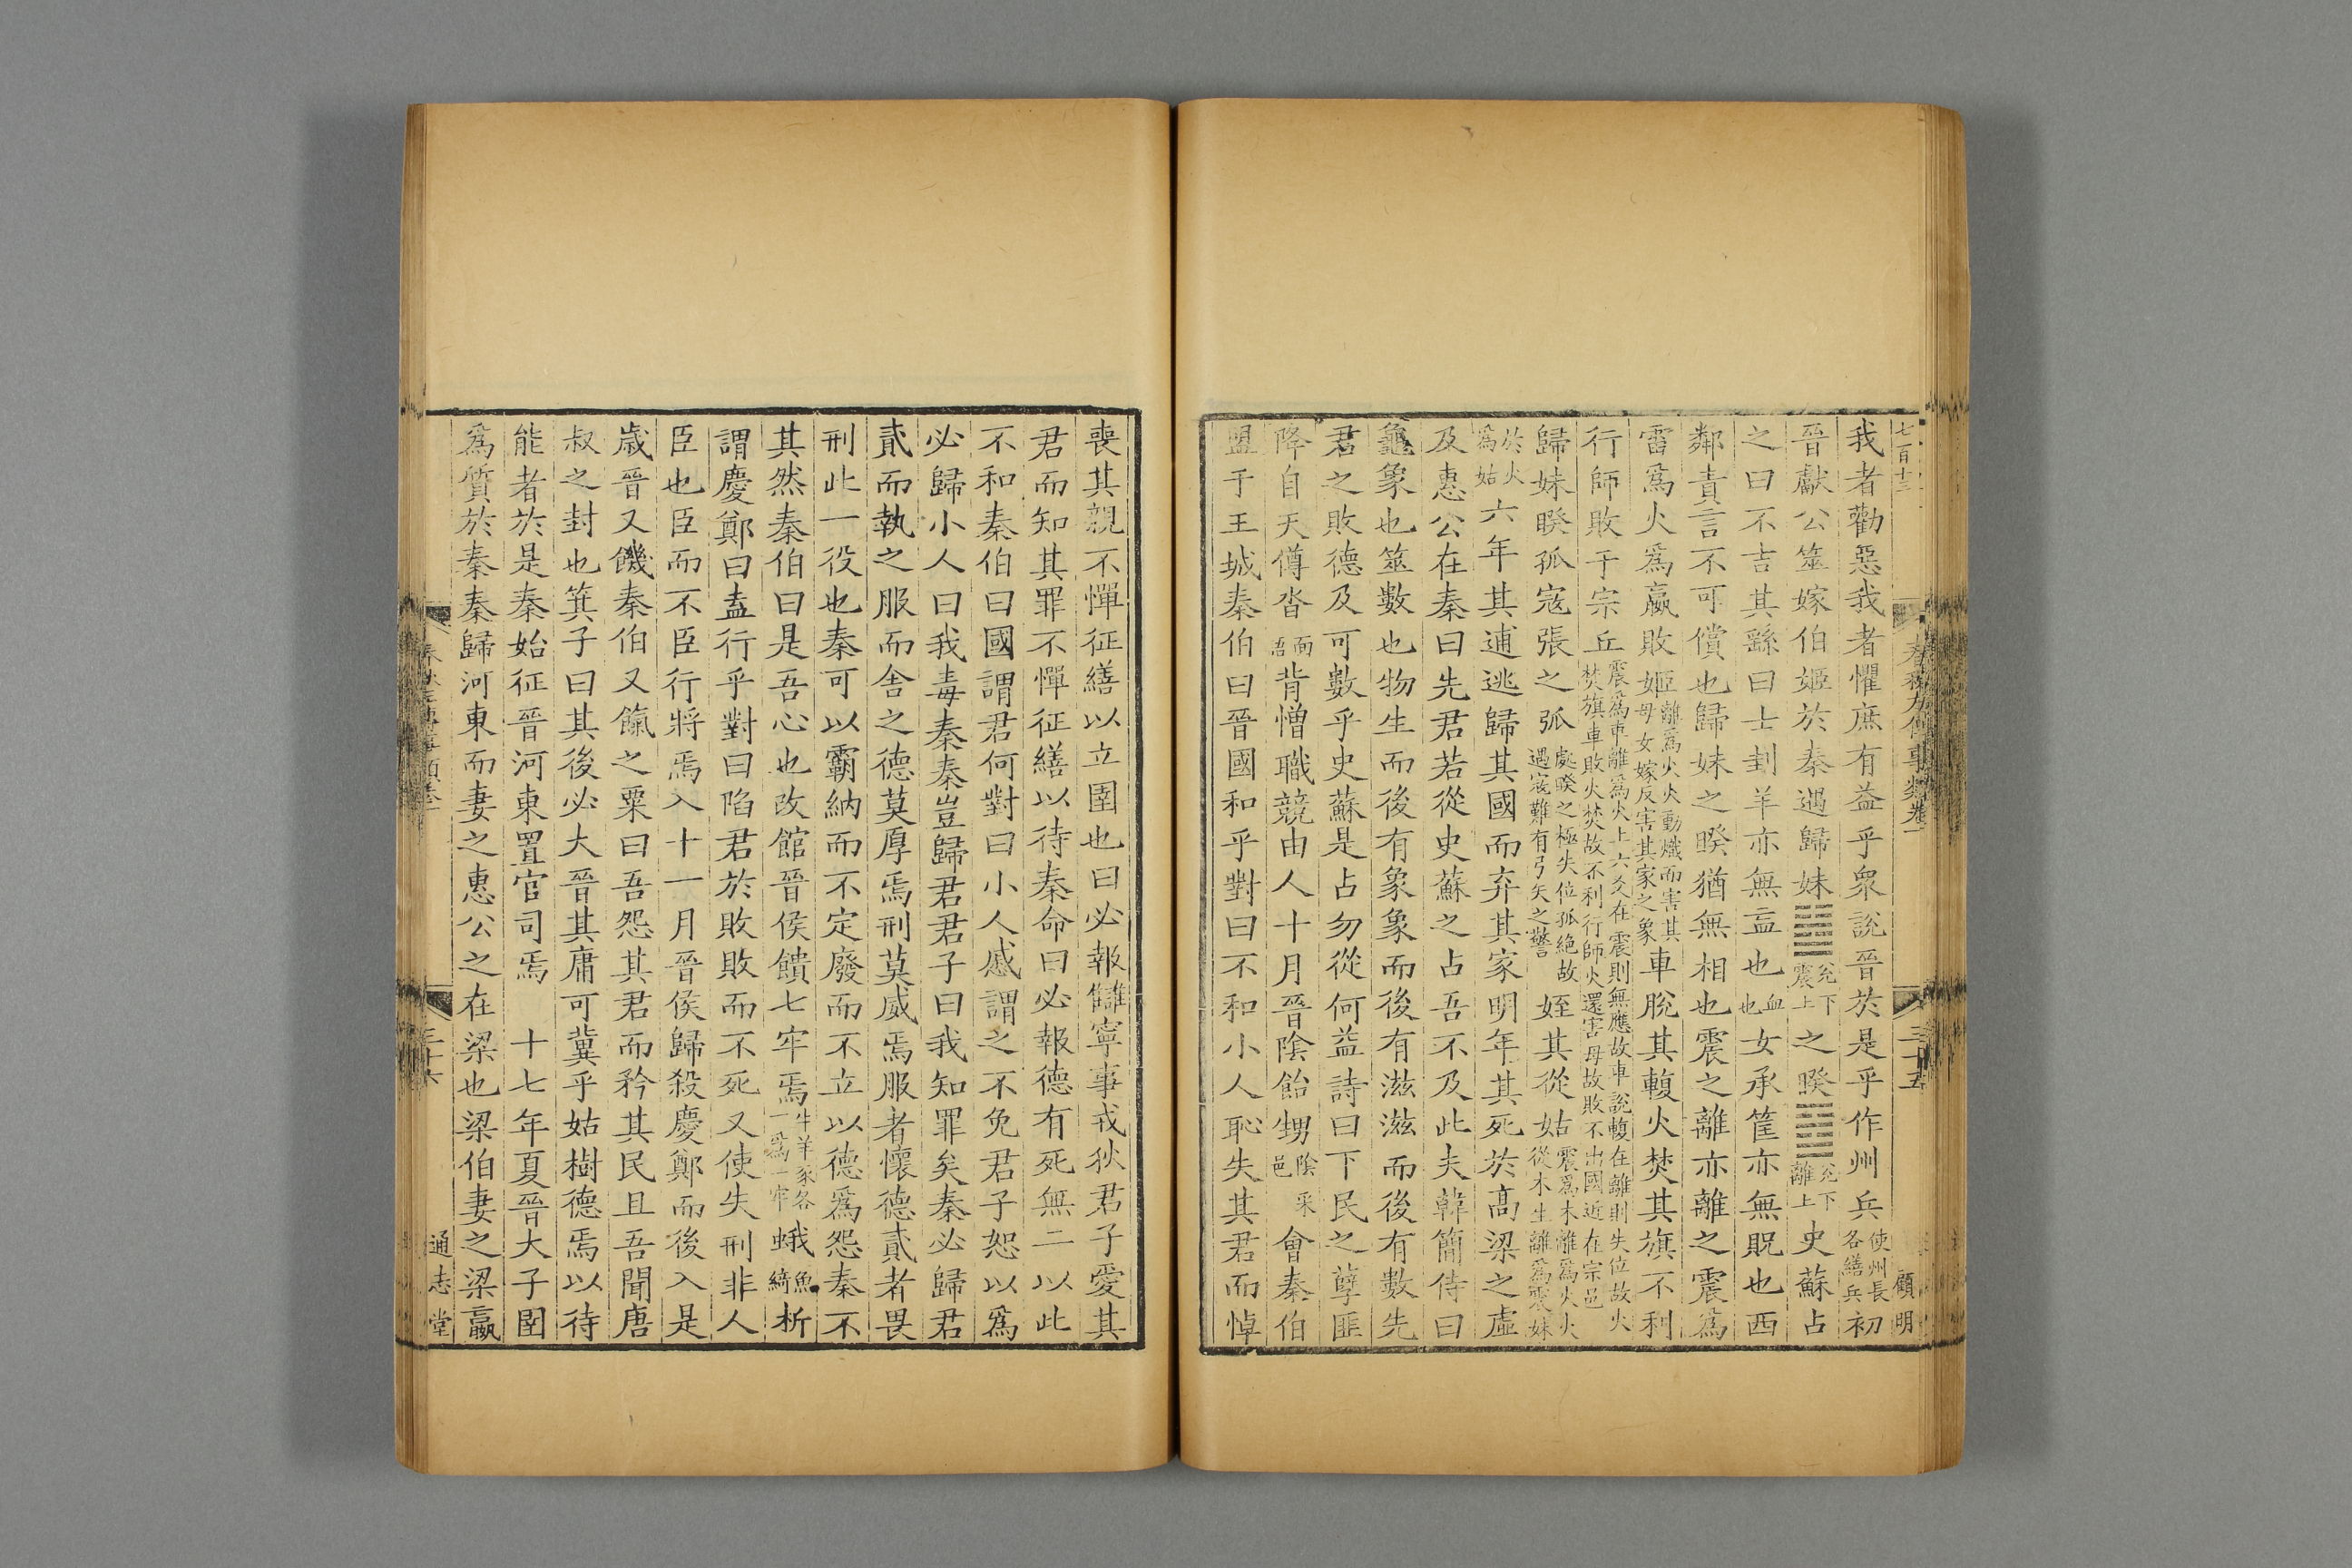 七百十三
春秋左傳事類卷一
三十五
顧明
我者勸惡我者懼庶有益乎衆說晉於是乎作州兵使州長各繕兵初
晉獻公筮嫁伯姬於秦遇歸妹䷵兌下震上之睽䷥兌下離上史蘇占
之曰不吉其繇曰士刲羊亦無衁也血也女承筐亦無貺也西
鄰責言不可償也歸妹之睽猶無相也震之離亦離之震爲
雷爲火爲嬴敗姬離爲火火動熾而害其母女嫁反害其家之象車脫其輹火焚其旗不利
行師敗于宗丘震爲車離爲火上六爻在震則無應故車說輹在離則失位故火焚旗車敗火焚故不利行師火還害母故敗不出國近在宗邑
歸妹睽孤寇張之弧處睽之極失位孤絶故遇寇難有弓矢之警姪其從姑震爲木離爲火火從木生離爲震妹
於火爲姑六年其逋逃歸其國而弃其家明年其死於高梁之虛
及惠公在秦曰先君若從史蘇之占吾不及此夫韓簡侍曰
龜象也筮數也物生而後有象象而後有滋滋而後有數先
君之敗德及可數乎史蘇是占勿從何益詩曰下民之孽匪
降自天僔沓面語背憎職競由人十月晉陰飴甥陰采邑會秦伯
盟于王城秦伯曰晉國和乎對曰不和小人恥失其君而悼
喪其親不憚征繕以立圉也曰必報讎寧事戎狄君子愛其
君而知其罪不憚征繕以待秦命曰必報德有死無二以此
不和秦伯曰國謂君何對曰小人慼謂之不免君子恕以爲
必歸小人曰我毒秦秦豈歸君君子曰我知罪矣秦必歸君
貳而執之服而舍之德莫厚焉刑莫威焉服者懷德貳者畏
刑此一役也秦可以霸納而不定廢而不立以德爲怨秦不
其然秦伯曰是吾心也改館晉侯饋七牢焉牛羊豕各一爲一牢蛾魚綺析
謂慶鄭曰盍行乎對曰陷君於敗敗而不死又使失刑非人
臣也臣而不臣行將焉入十一月晉侯歸殺慶鄭而後入是
歲晉又饑秦伯又餼之粟曰吾怨其君而矜其民且吾聞唐
叔之封也箕子曰其後必大晉其庸可冀乎姑樹德焉以待
能者於是秦始征晉河東置官司焉 十七年夏晉大子圉
爲質於秦秦歸河東而妻之惠公之在梁也梁伯妻之梁嬴
三十六
通志堂